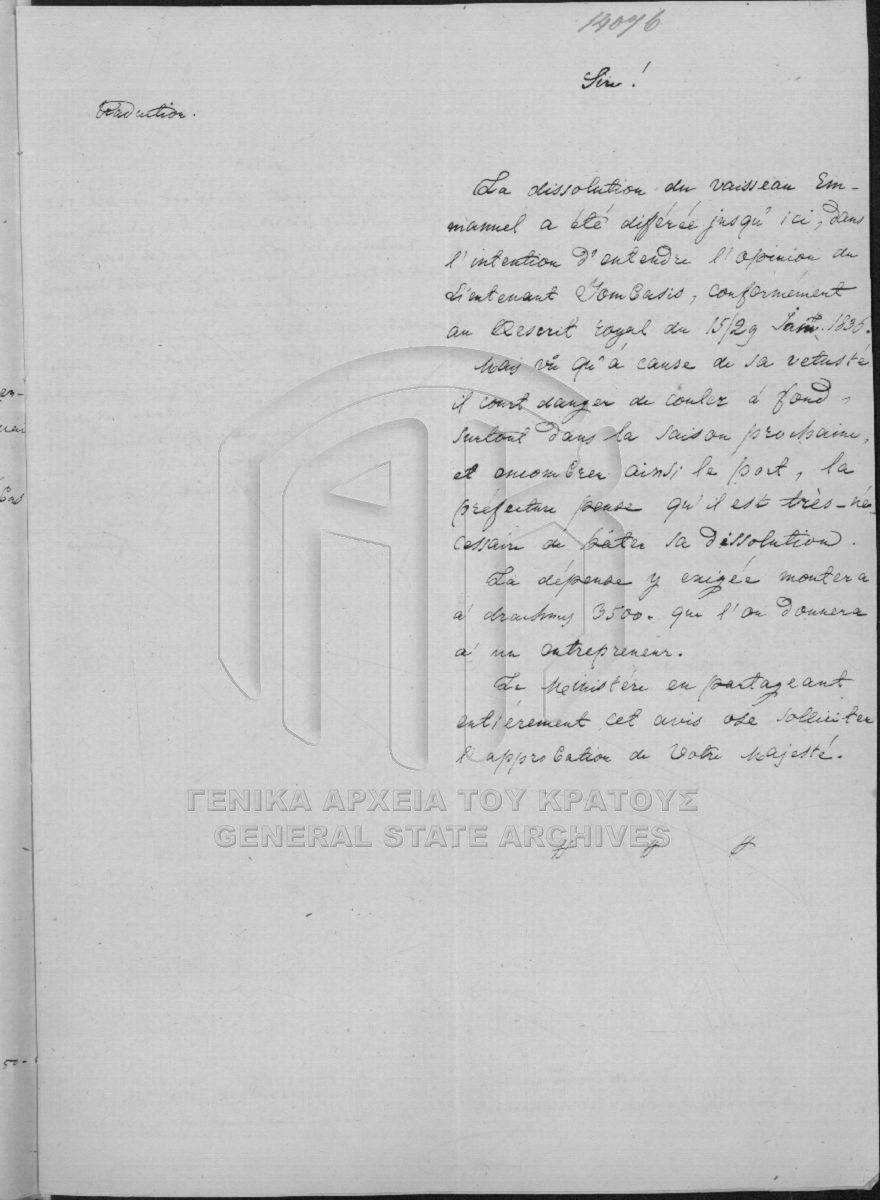 Sire!
Traduction.
La dissolution du vaisseau Em-
manuel a été différée jusqu'ici, dans
l'intention d'entendre l'opinion du
Lieutenant Tombasis, conformément
au Rescrit royal du 15/29 1836.
Mais vû qu'à cause de sa vetusté
il court danger de couler à fond,
surtout dans la saison prochaine,
et encombrer ainsi le port, la
préfecture pense qu'il est très-né-
cessaire de hâter sa dissolution.
La dépense y exigée montera
à drachmes 3500. que l'on donnera
à un entrepreneur.
Le Ministère en partageant
entièrement cet avis ose solliciter
l'approbation de Votre Majesté.
ΓΕΝΙΚΑ ΑΡΧΕΙΑ ΤΟΥ ΚΡΑΤΟΥΣ
GENERAL STATE ARCHIVES